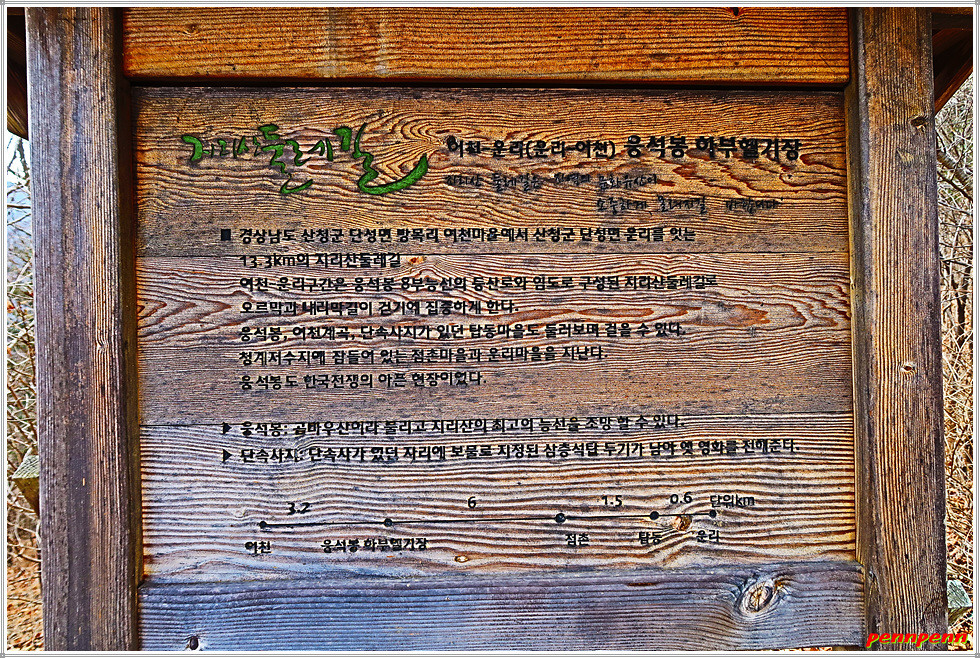 지리산둘레길
어천-운리(운리-어천) 웅석봉 하부헬기장
지리산 둘레길은 문화유산
소중하게 물려시길 바랍니다
■ 경상남도 산청군 단성면 방목리 어천마을에서 산청군 단성면 운리를 잇는
13.3km의 지리산둘레길
어천-운리구간은 웅석봉 8부능선의 등산로와 임도로 구성된 지리산둘레길로
오르막과 내리막길이 걷기에 집중하게 한다.
웅석봉, 어천계곡, 단속사지가 있던 탑동마을도 둘러보며 걸을 수 있다.
청계저수지에 잠들어 있는 점촌마을과 운리마을을 지난다.
웅석봉도 한국전쟁의 아픈 현장이었다.
▶ 웅석봉: 곰바우산이라 불리고 지리산의 최고의 능선을 조망 할 수 있다.
▶ 단속사지: 단속사가 있던 자리에 보물로 지정된 삼층석탑 두기가 남아 옛 영화를 전해준다.
3.2 6 1.5 0.6 단위km
어천 웅석봉 하부헬기장 점촌 탑동 운리
pennpenn